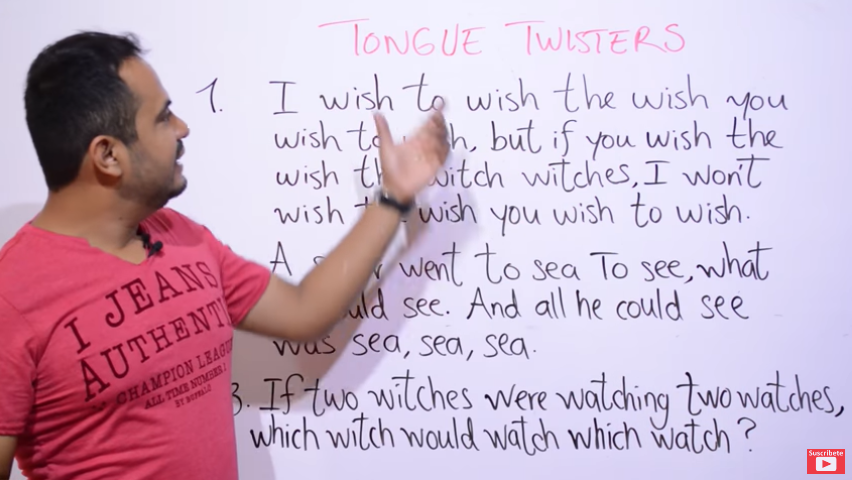 TONGUE TWISTERS
1. I wish to wish the wish you
wish to, but if you wish the
wish witch witches, I won't
wish wish you wish to wish.
A went to sea To see, what
see. And all he could see
was sea, sea, sea.
3. If two witches were watching two watches,
which witch would watch which watch?
I JEANS
AUTHENTI
CHAMPION LEAGU
ALL TIME NUMBER 1
BY BUFFALO
Suscríbete